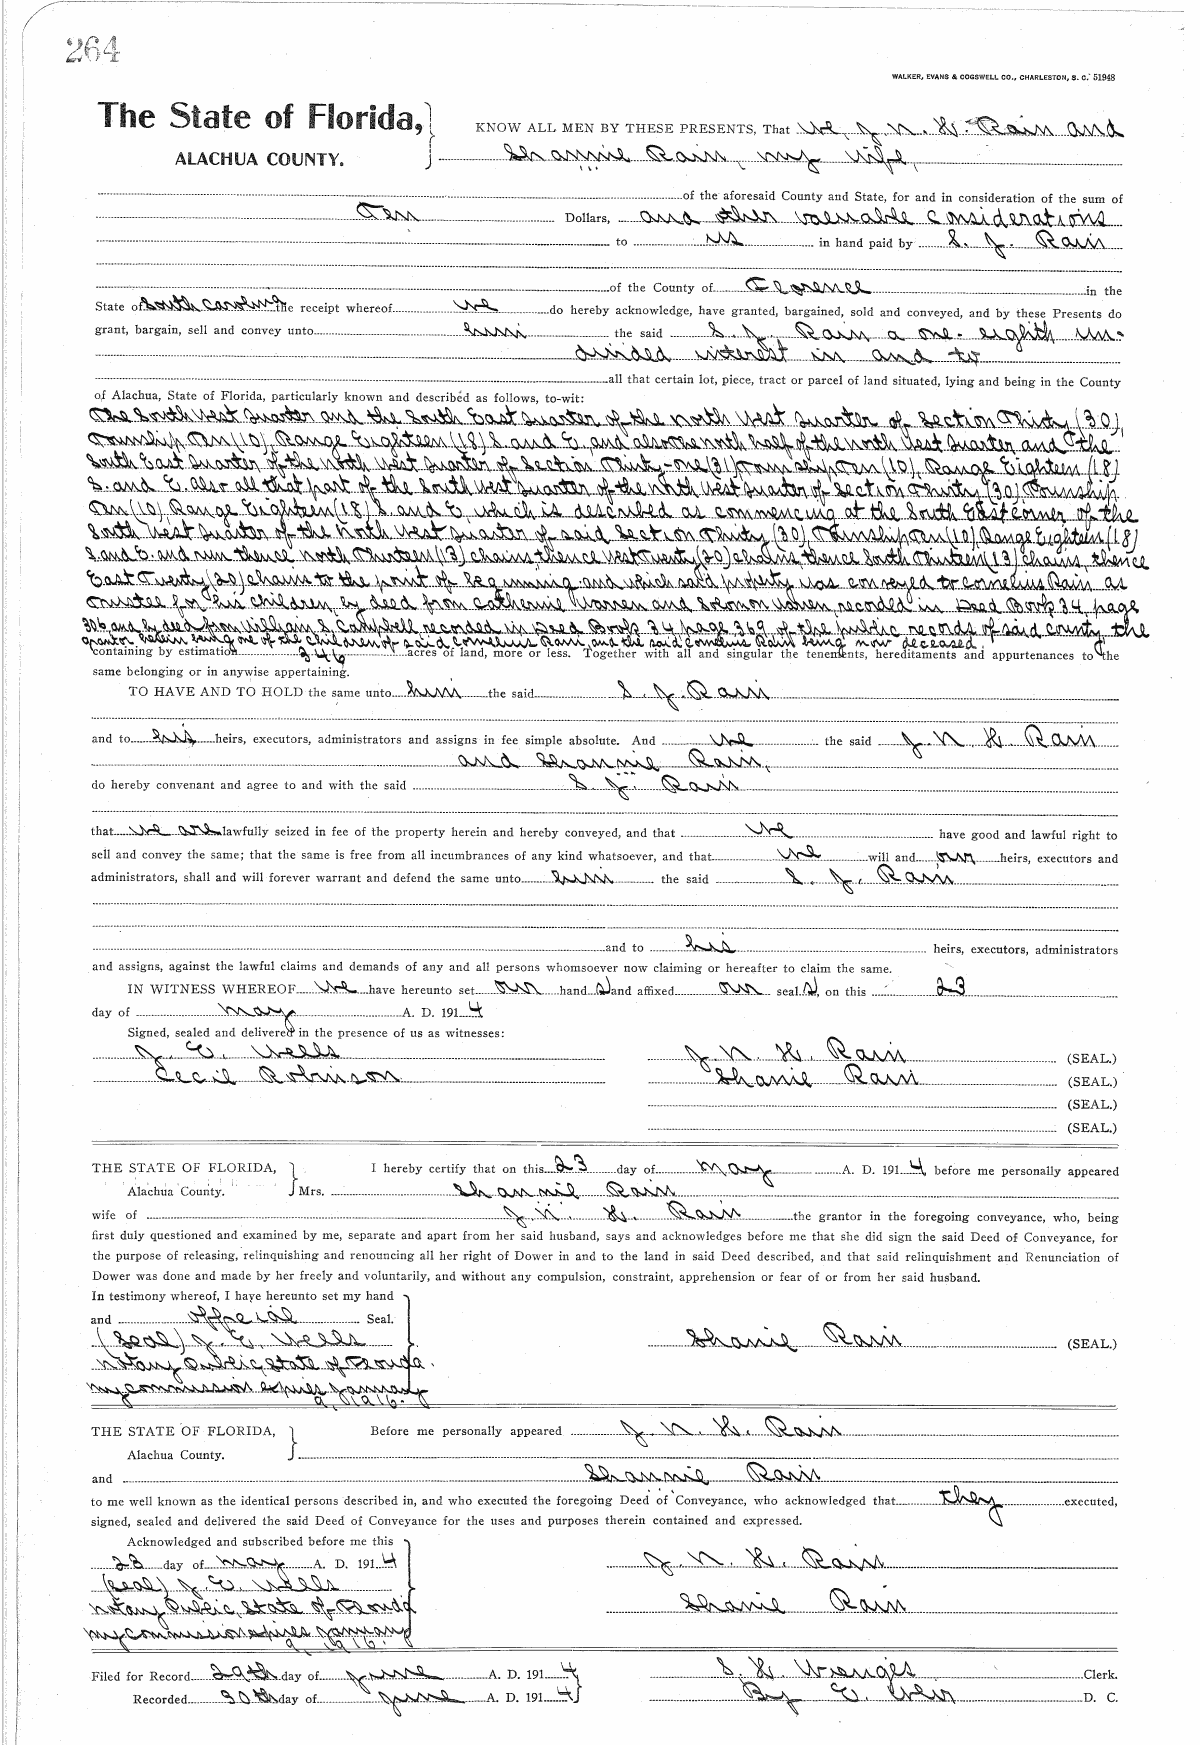 264
WALKER, EVANS & COGSWELL CO., CHARLESTON, S. C. 51948
The State of Florida,
ALACHUA COUNTY.
KNOW ALL MEN BY THESE PRESENTS, That We, J. N. H. Rain and
Shannie Rain, my wife,
of the aforesaid County and State, for and in consideration of the sum of
Ten Dollars, and other valuable considerations
to us in hand paid by S. J. Rain
of the County of Florence in the
State of South Carolina the receipt whereof we do hereby acknowledge, have granted, bargained, sold and conveyed, and by these Presents do
grant, bargain, sell and convey unto him the said S. J. Rain a one-eighth un-
divided interest in and to
all that certain lot, piece, tract or parcel of land situated, lying and being in the County
of Alachua, State of Florida, particularly known and described as follows, to-wit:
The South West Quarter and the South East Quarter of the North West Quarter of Section Thirty (30),
Township Ten (10), Range Eighteen (18) S. and E. and also the north half of the north West Quarter and the
South East Quarter of the North West Quarter of Section Thirty-one (31) Township Ten (10), Range Eighteen (18)
S. and E. Also all that part of the South West Quarter of the North West Quarter of Section Thirty (30) Township
Ten (10) Range Eighteen (18) S. and E. which is described as commencing at the South East corner of the
South West Quarter of the North West Quarter of said Section Thirty (30), Township Ten (10), Range Eighteen (18)
S. and E. and run thence north Thirteen (13) chains, thence West Twenty (20) chains thence South Thirteen (13) chains, thence
East Twenty (20) chains to the point of beginning and which said property was conveyed to Cornelius Rain as
Trustee for his children, by deed from Catherine Warren and Solomon Warren, recorded in Deed Book 34, page
306 and by deed from William S. Campbell recorded in Deed Book 34 page 369 of the public records of said county the
grantor herein being one of the children of said Cornelius Rain, and the said Cornelius Rain being now deceased.
containing by estimation 346 acres of land, more or less. Together with all and singular the tenements, hereditaments and appurtenances to the
same belonging or in anywise appertaining.
TO HAVE AND TO HOLD the same unto him the said S. J. Rain
and to his heirs, executors, administrators and assigns in fee simple absolute. And we the said J. N. H. Rain
and Shannie Rain,
do hereby convenant and agree to and with the said S. J. Rain
that we are lawfully seized in fee of the property herein and hereby conveyed, and that we have good and lawful right to
sell and convey the same; that the same is free from all incumbrances of any kind whatsoever, and that we will and our heirs, executors and
administrators, shall and will forever warrant and defend the same unto him the said S. J. Rain
and to his heirs, executors, administrators
and assigns, against the lawful claims and demands of any and all persons whomsoever now claiming or hereafter to claim the same.
IN WITNESS WHEREOF we have hereunto set our hand s and affixed our seal s, on this 23
day of May A. D. 191 4
Signed, sealed and delivered in the presence of us as witnesses:
J. E. Wells J. N. H. Rain (SEAL.)
Cecil Robinson Shanie Rain (SEAL.)
(SEAL.)
(SEAL.)
THE STATE OF FLORIDA, I hereby certify that on this 23 day of May A. D. 191 4 before me personally appeared
Alachua County. Mrs. Shannie Rain
wife of J. N. H. Rain the grantor in the foregoing conveyance, who, being
first duly questioned and examined by me, separate and apart from her said husband, says and acknowledges before me that she did sign the said Deed of Conveyance, for
the purpose of releasing, relinquishing and renouncing all her right of Dower in and to the land in said Deed described, and that said relinquishment and Renunciation of
Dower was done and made by her freely and voluntarily, and without any compulsion, constraint, apprehension or fear of or from her said husband.
In testimony whereof, I have hereunto set my hand
and official Seal.
(Seal) J. E. Wells Shanie Rain (SEAL.)
Notary Public, State of Florida.
My commission expires January
9, 1916.
THE STATE OF FLORIDA, Before me personally appeared J. N. H. Rain
Alachua County.
and Shannie Rain
to me well known as the identical persons described in, and who executed the foregoing Deed of Conveyance, who acknowledged that they executed,
signed, sealed and delivered the said Deed of Conveyance for the uses and purposes therein contained and expressed.
Acknowledged and subscribed before me this
23 day of May A. D. 191 4 J. N. H. Rain
(Seal) J. E. Wells
Notary Public, State of Florida Shanie Rain
My commission expires January
9, 1916.
Filed for Record 29th day of June A. D. 191 4 S. H. Wienges Clerk.
Recorded 30th day of June A. D. 191 4 By E. Weir D. C.